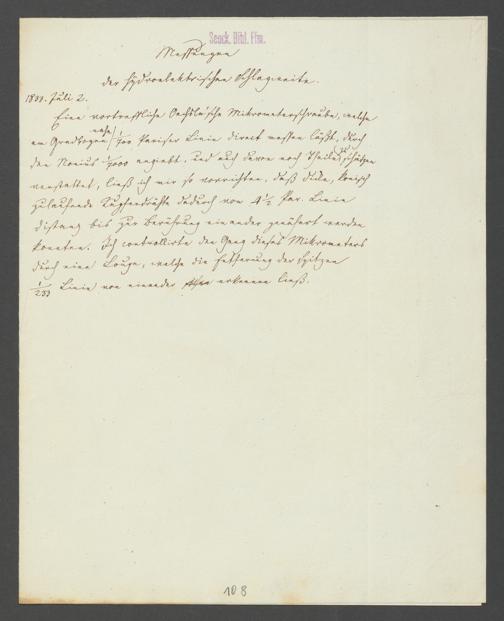 Senck. Bibl. Ffm.
Messungen
der hydroelektrischen Schlagweite.
1839. Juli 2.
Eine vortreffliche Oechsle'sche Mikrometerschraube, welche
am Gradbogen nahe 1/100 Pariser Linie direct messen läßt, durch
den Nonius 1/1000 angiebt, und auch davon noch Theile zu schätzen
verstattet, ließ ich mir so vorrichten, daß dicke, konisch
zulaufende dadurch von 4 1/2 Par. Linie
Distanz bis zur Berührung einander genähert werden
konnten. Ich controllirte den Gang dieses Mikrometers
durch eine Loupe, welche die Entfernung der Spitzen
Linie von einander erkennen ließ.
108